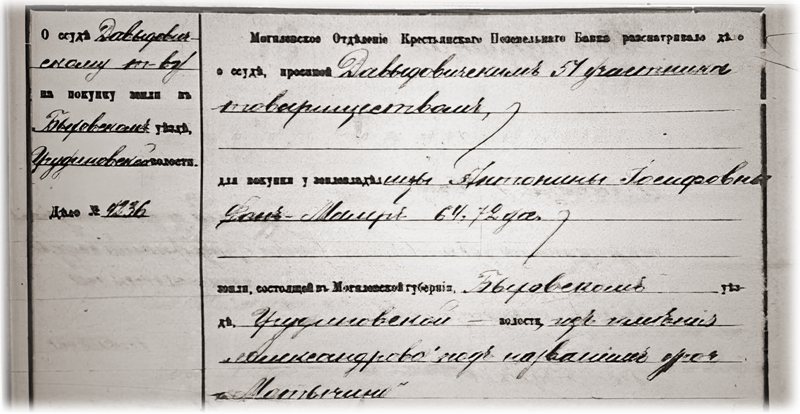 О ссудѣ Давыдович-
скому т-ву
на покупку земли въ
Быховскомъ уѣздѣ,
Чудиновской волости.
Дѣло № 4236
Могилевское Отдѣленіе Крестьянскаго Поземельнаго Банка разсматривало дѣло
о ссудѣ, просимой Давыдовичскимъ 51 участника
товариществомъ,
для покупки у землевладѣлицы Антонины Іосифовны
Фонъ-Меллеръ 64.72 дес.
земли, состоящей въ Могилевской губерніи, Быховскомъ уѣз-
дѣ, Чудиновской волости, изъ имѣнія
"Александрово" подъ названіемъ уроч